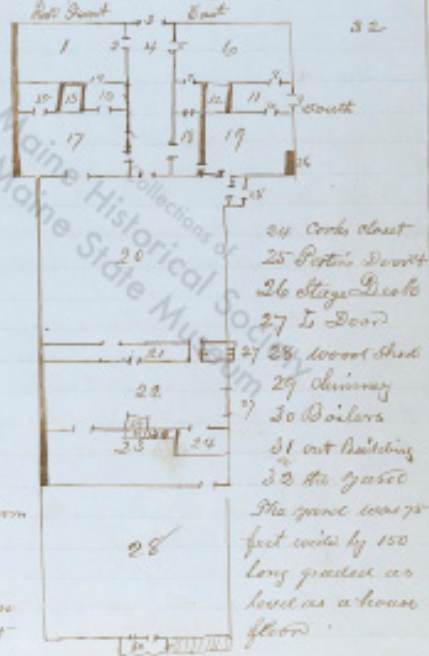 Front East
3 32
1 2 4 5 6
13 10 12 11 South
17 18 19
26
25
20
24 Cooks closet
25 Portico Door
26 Stage Desk
27 L Door
21 27 28 wood shed
22 29 chimney
27 30 Boilers
23 24 31 out Building
32 the yard
The yard was 75
feet wide by 150
28 long graded as
level as a house
floor
collections of
Maine Historical Society
Maine State Museum